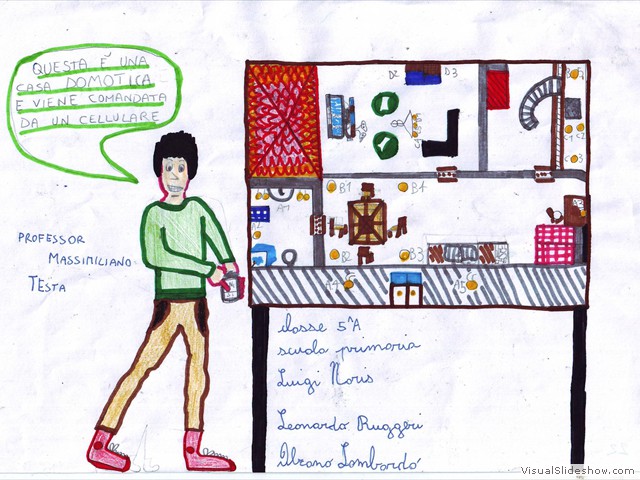 QUESTA È UNA
CASA DOMOTICA
E VIENE COMANDATA
DA UN CELLULARE
PROFESSOR
MASSIMILIANO
TESTA
D2 D3
C1
C2
C3
A1
A2
B1
B4
B2
B3
A4
A5
classe 5^A
scuola primaria
Luigi Noris
Leonardo Ruggeri
Urano Lombardó
VisualSlideshow.com